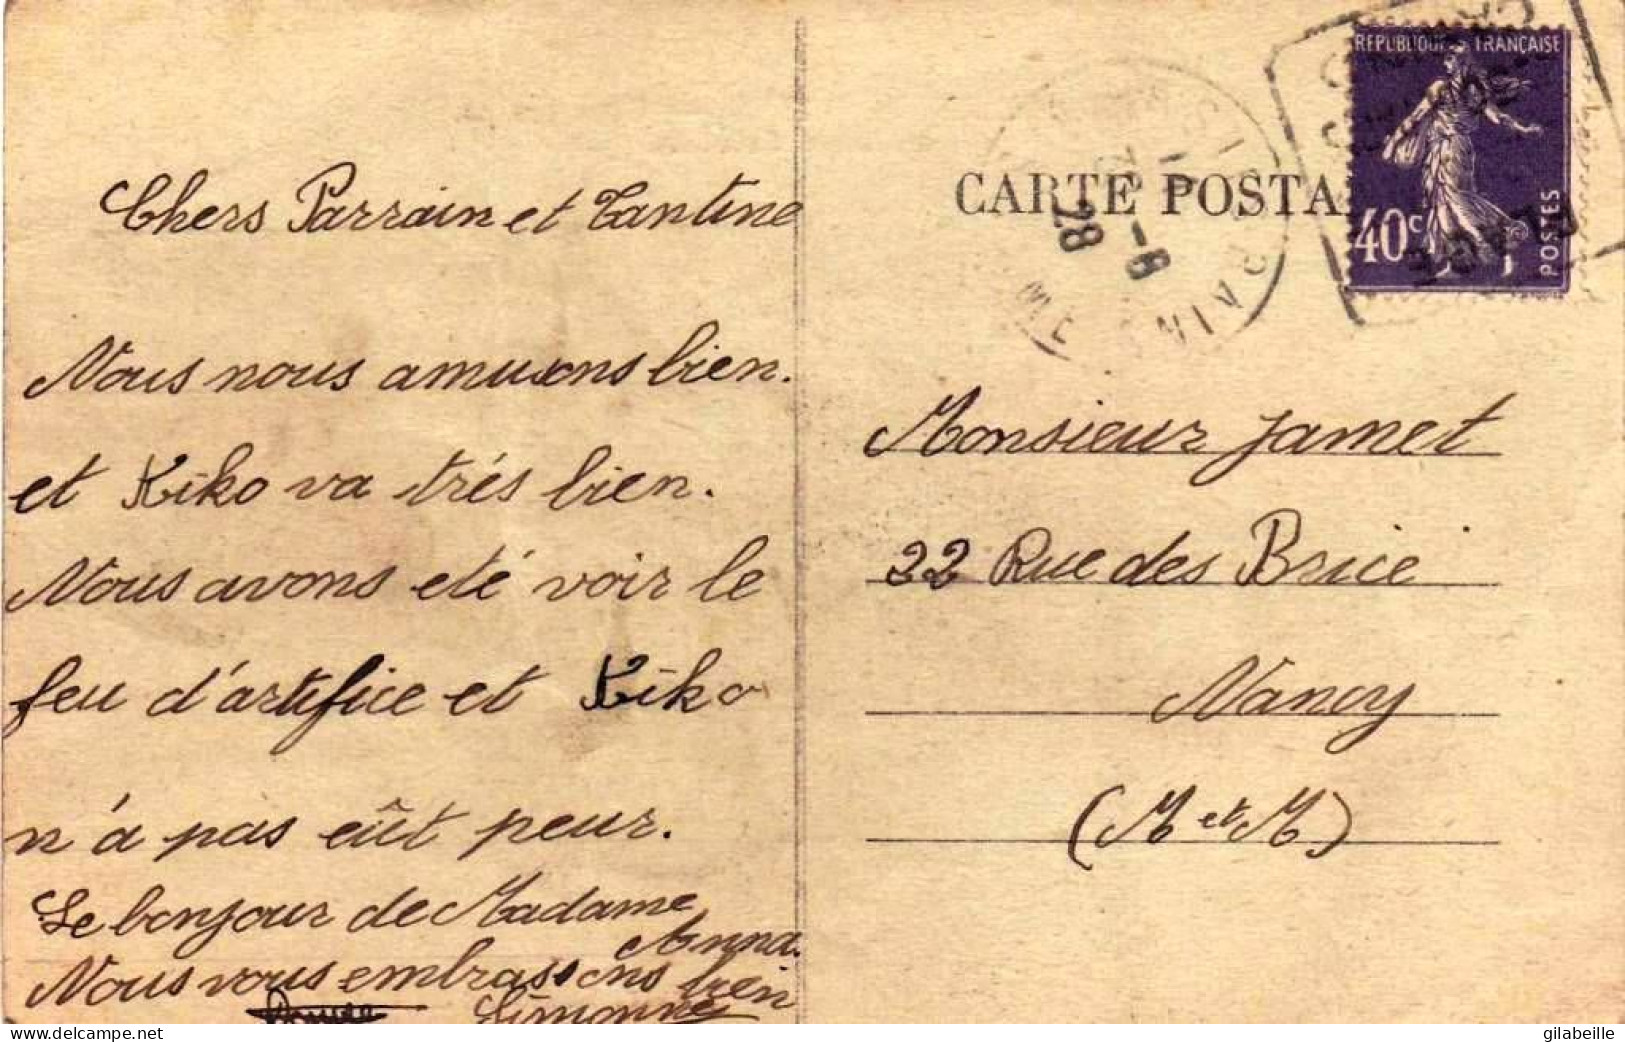 Chers Parrain et Tantine
Nous nous amusons bien.
et Kiko va trés bien.
Nous avons eté voir le
feu d'artifice et Kiko
n'á pas eût peur.
Le bonjour de Madame
Anna.
Nous vous embrassons bien
Simonne
CARTE POSTA
REPUBLIQUE FRANÇAISE
40c
POSTES
28
Monsieur Jamet
22 Rue des Brice
Nancy
(M et M)
www.delcampe.net
gilabeille